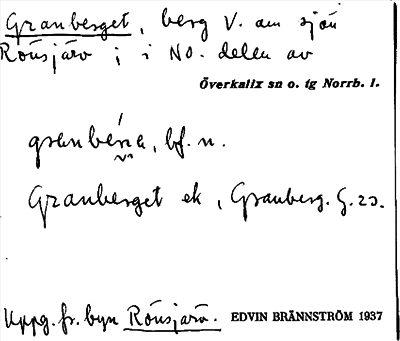 Granberget, berg V. om sjön
Rönsjärv i NO. delen av
Överkalix sn o. tg Norrb. l.
granbéna, bf. n.
Granberget ek, Granberg. G. 23.
Uppg. fr. byn Rönsjärv. EDVIN BRÄNNSTRÖM 1937